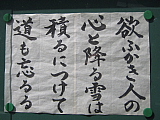 欲ふかき人の
心と降る雪は
積るにつけて
道も忘るゝ